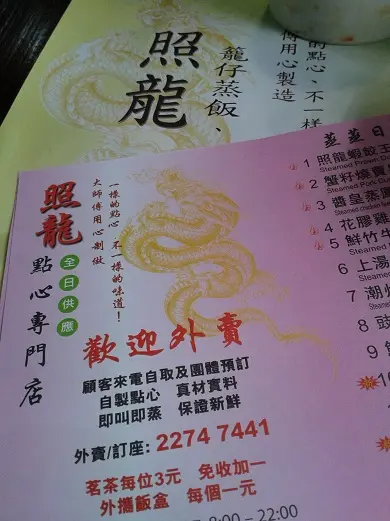 照龍
籠仔蒸飯、
的點心 不一樣
傅用心製造
照龍
點心專門店
全日供應
一樣的點心 不一樣的味道！
大師傅用心制做
歡迎外賣
顧客來電自取及團體預訂
自製點心 真材實料
即叫即蒸 保證新鮮
外賣/訂座: 2274 7441
茗茶每位3元 免收加一
外攜飯盒 每個一元
8:00 – 22:00
蒸蒸日
1 照龍蝦餃王
Steamed Prawn D
2 蟹籽燒賣
Steamed Pork Du
3 醬皇蒸
4 花膠雞
5 鮮竹牛
6 上湯
7 潮州
Steamed
8 豉
9
10